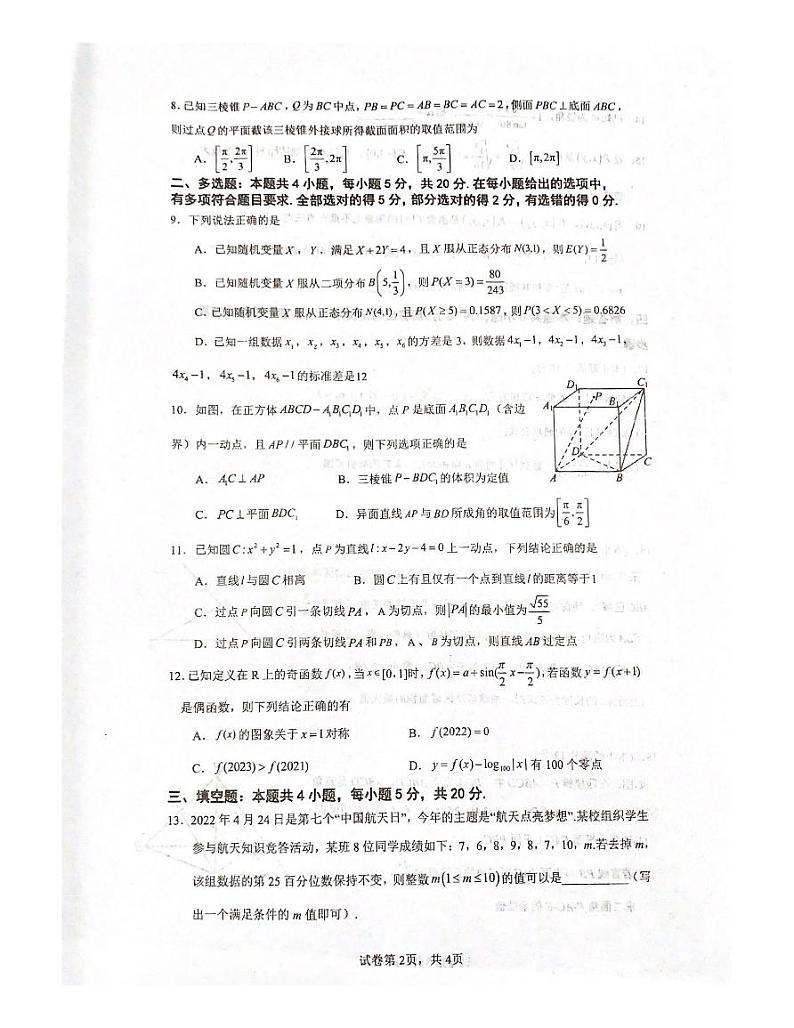 8.已知三棱锥P-ABC,Q为BC中点,PB=PC=AB=BC=AC=2,侧面PBC⊥底面ABC,
则过点Q的平面截该三棱锥外接球所得截面面积的取值范围为
A.[π/2,2π/3] B.[2π/3,2π] C.[π,5π/3] D.[π,2π]
二、多选题:本题共4小题,每小题5分,共20分.在每小题给出的选项中,
有多项符合题目要求.全部选对的得5分,部分选对的得2分,有选错的得0分.
9.下列说法正确的是
A.已知随机变量X,Y,满足X+2Y=4,且X服从正态分布N(3,1),则E(Y)=1/2
B.已知随机变量X服从二项分布B(5,1/3),则P(X=3)=80/243
C.已知随机变量X服从正态分布N(4,1),且P(X≥5)=0.1587,则P(3<X≤5)=0.6826
D.已知一组数据x₁,x₂,x₃,x₄,x₅,x₆的方差是3,则数据4x₁-1,4x₂-1,4x₃-1,
4x₄-1,4x₅-1,4x₆-1的标准差是12
10.如图,在正方体ABCD-A₁B₁C₁D₁中,点P是底面A₁B₁C₁D₁(含边
界)内一动点,且AP//平面DBC₁,则下列选项正确的是
A.A₁C⊥AP B.三棱锥P-BDC₁的体积为定值
C.PC⊥平面BDC₁ D.异面直线AP与BD所成角的取值范围为[π/6,π/2]
D₁ C₁
A₁ P B₁
D C
A B
11.已知圆C:x²+y²=1,点P为直线l:x-2y-4=0上一动点,下列结论正确的是
A.直线l与圆C相离 B.圆C上有且仅有一个点到直线l的距离等于1
C.过点P向圆C引一条切线PA,A为切点,则|PA|的最小值为√55/5
D.过点P向圆C引两条切线PA和PB,A、B为切点,则直线AB过定点
12.已知定义在R上的奇函数f(x),当x∈[0,1]时,f(x)=a+sin(π/2 x-π/2),若函数y=f(x+1)
是偶函数,则下列结论正确的有
A.f(x)的图象关于x=1对称 B.f(2022)=0
C.f(2023)>f(2021) D.y=f(x)-log₁₀₀|x|有100个零点
三、填空题:本题共4小题,每小题5分,共20分.
13.2022年4月24日是第七个“中国航天日”,今年的主题是“航天点亮梦想”.某校组织学生
参与航天知识竞答活动,某班8位同学成绩如下:7,6,8,9,8,7,10,m.若去掉m,
该组数据的第25百分位数保持不变,则整数m(1≤m≤10)的值可以是__________(写
出一个满足条件的m值即可).
试卷第2页,共4页